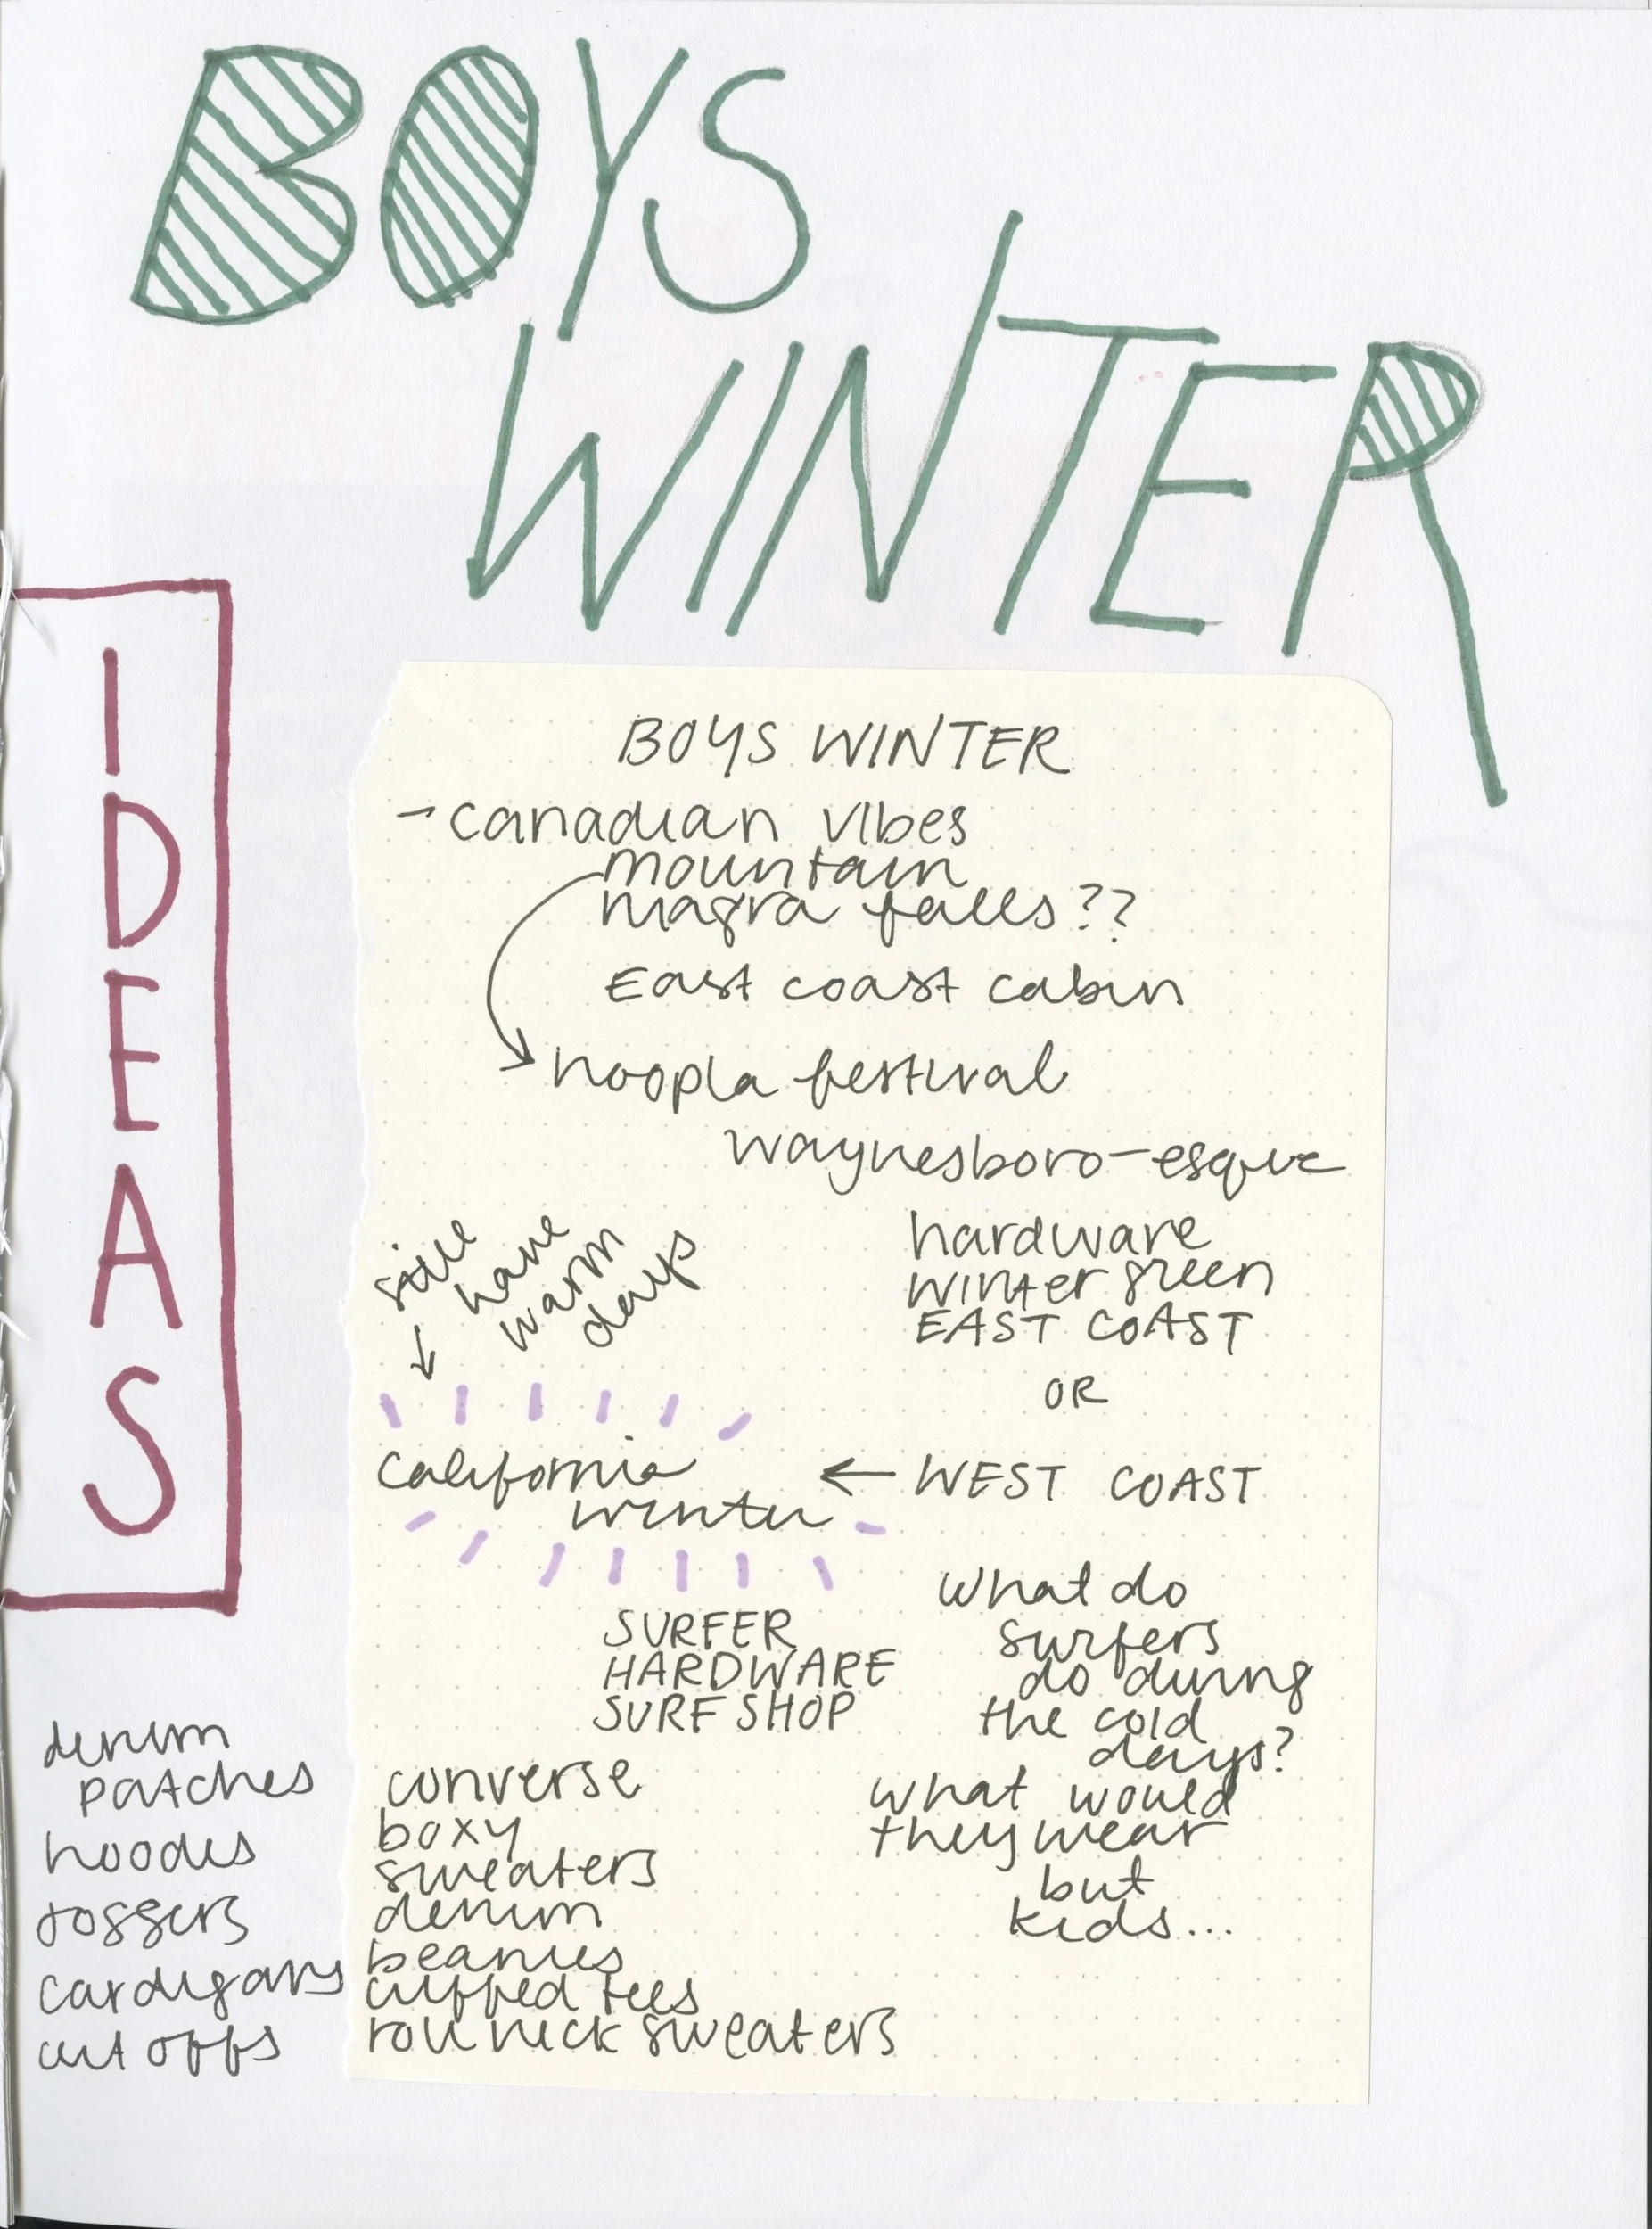 BOYS
WINTER
IDEAS
BOYS WINTER
- canadian vibes
mountain
niagra falls??
East coast cabin
hoopla festival
waynesboro-esque
still
have
warm
days
hardware
winter green
EAST COAST
OR
california
winter
← WEST COAST
SURFER
HARDWARE
SURF SHOP
what do
surfers
do during
the cold
days?
what would
they wear
but
kids...
converse
boxy
sweaters
denim
beanies
cuffed tees
roll neck sweaters
denim
patches
hoodies
joggers
cardigans
cut offs